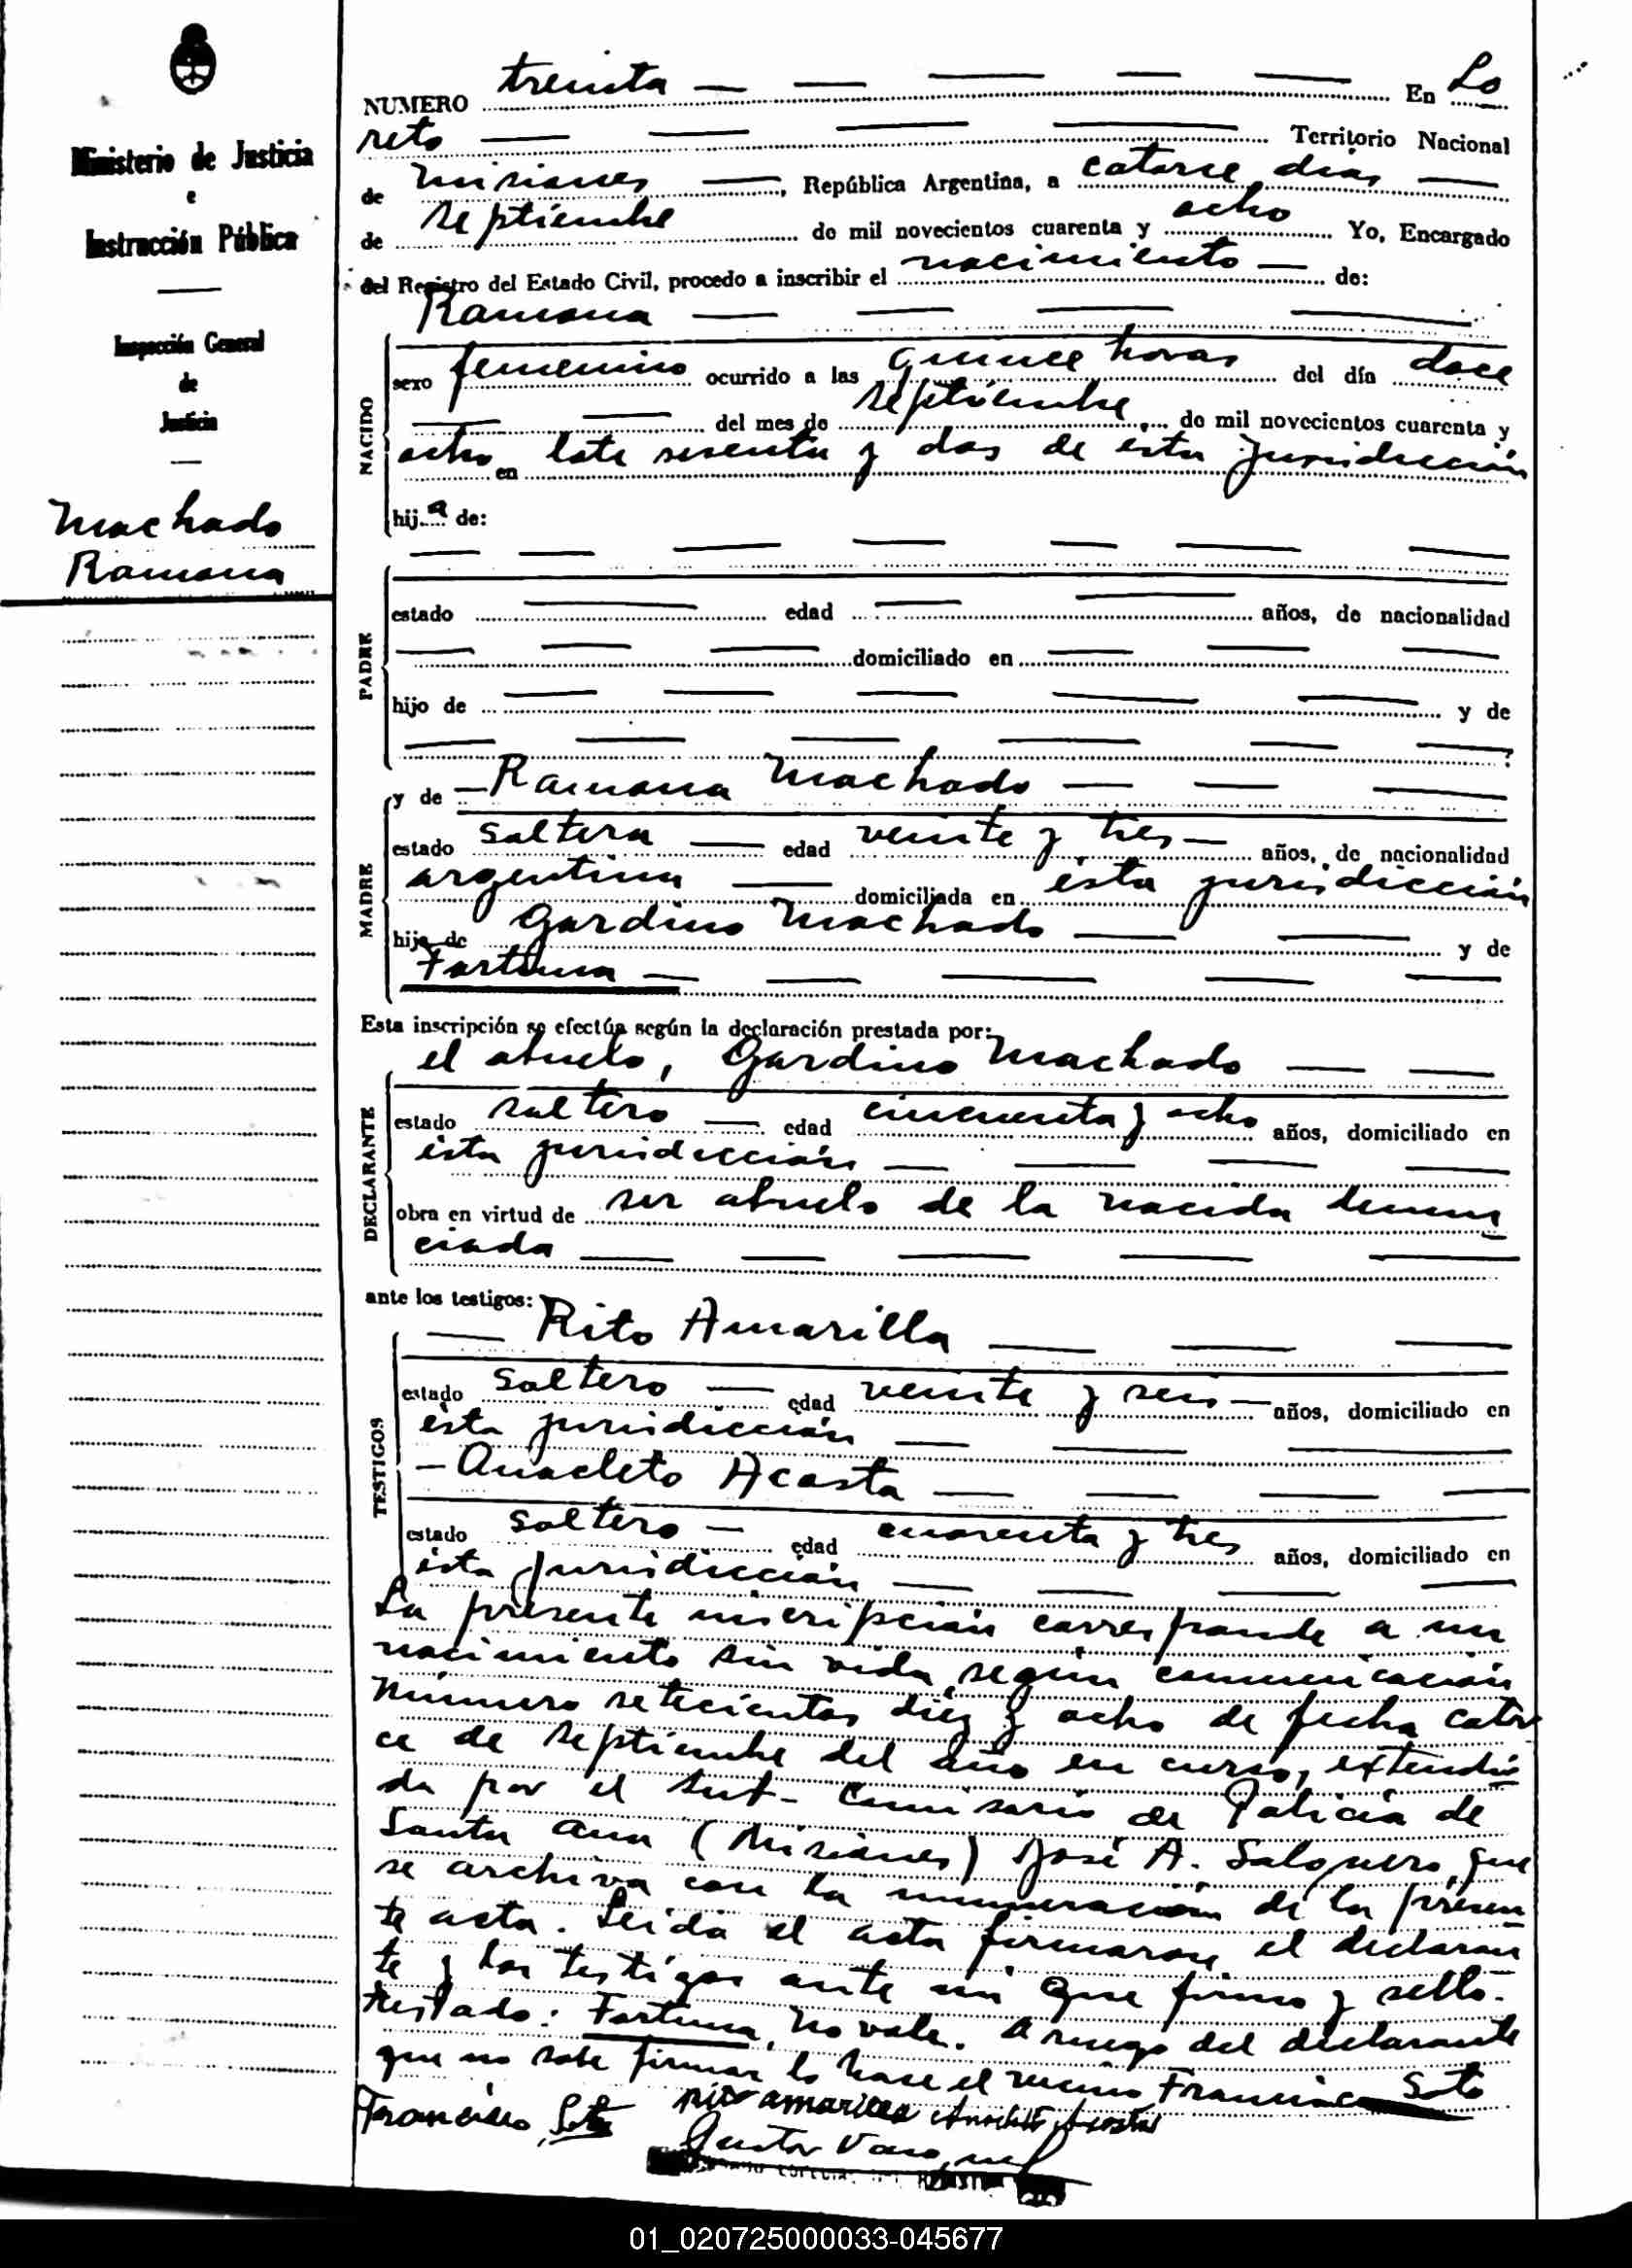 Ministerio de Justicia
e
Instrucción Pública
Inspección General
de
Justicia
Machado
Ramona
NUMERO treinta — En Lo
reto — Territorio Nacional
de Misiones —, República Argentina, a catorce días —
de septiembre de mil novecientos cuarenta y ocho Yo, Encargado
del Registro del Estado Civil, procedo a inscribir el nacimiento — de:
Ramona —
NACIDO
sexo femenino ocurrido a las quince horas del día doce
— del mes de septiembre, de mil novecientos cuarenta y
ocho en lote sesenta y dos de esta jurisdicción
hija de:
PADRE
estado — edad — años, de nacionalidad
— domiciliado en —
hijo de — y de
—
MADRE
y de — Ramona Machado —
estado soltera — edad veinte y tres — años, de nacionalidad
argentina — domiciliada en ésta jurisdicción
hija de Gardino Machado — y de
Fortuna —
Esta inscripción se efectúa según la declaración prestada por:
el abuelo, Gardino Machado —
DECLARANTE
estado soltero — edad cincuenta y ocho años, domiciliado en
ésta jurisdicción —
obra en virtud de ser abuelo de la nacida denun
ciada —
ante los testigos:
— Rito Amarilla —
TESTIGOS
estado soltero — edad veinte y seis — años, domiciliado en
ésta jurisdicción —
— Anacleto Acosta —
estado soltero — edad cuarenta y tres años, domiciliado en
ésta jurisdicción —
La presente inscripción corresponde a un
nacimiento sin vida, según comunicación
número setecientos diez y ocho de fecha cator
ce de septiembre del año en curso, extendi
da por el Sub-Comisario de Policía de
Santa Ana (Misiones) José A. Salguero, que
se archiva con la numeración de la presen
te acta. Leída el acta firmaron el declaran
te y los testigos ante mí que firmo y sello.
Testado: Fortuna, no vale. A ruego del declarante
que no sabe firmar lo hace el vecino Francisco Soto
Francisco Soto rito amarilla Anacleto Acosta
01_020725000033-045677